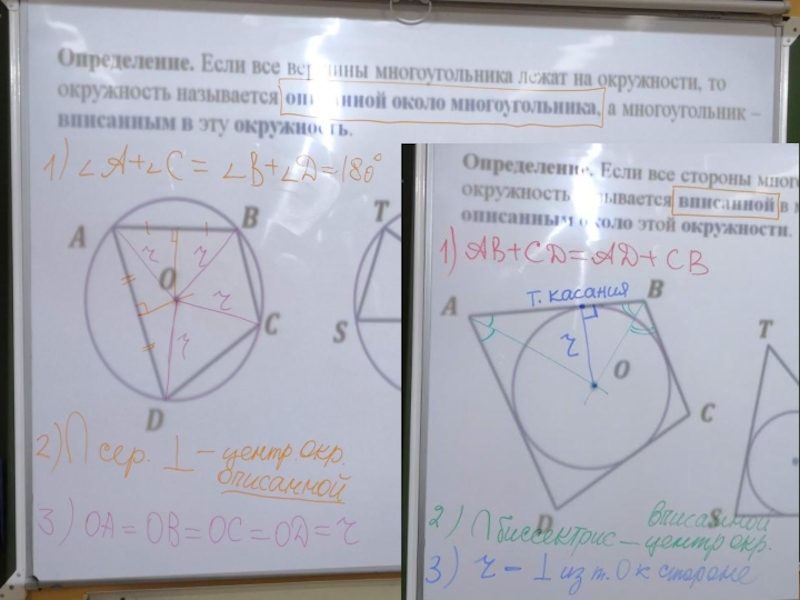 Определение. Если все вершины многоугольника лежат на окружности, то
окружность называется описанной около многоугольника, а многоугольник –
вписанным в эту окружность.
1) ∠A+∠C = ∠B+∠D=180°
A
B
O
r
r
r
r
C
D
T
S
2) ∩ сер. ⊥ – центр. окр.
описанной
3) OA = OB = OC = OD = r
Определение. Если все стороны мног
окружность называется вписанной в м
описанным около этой окружности.
1) AB+CD=AD+CB
т. касания
A
B
r
O
C
D
T
S
2) ∩ биссектрис – центр окр.
вписанной
3) r – ⊥ из т. О к стороне